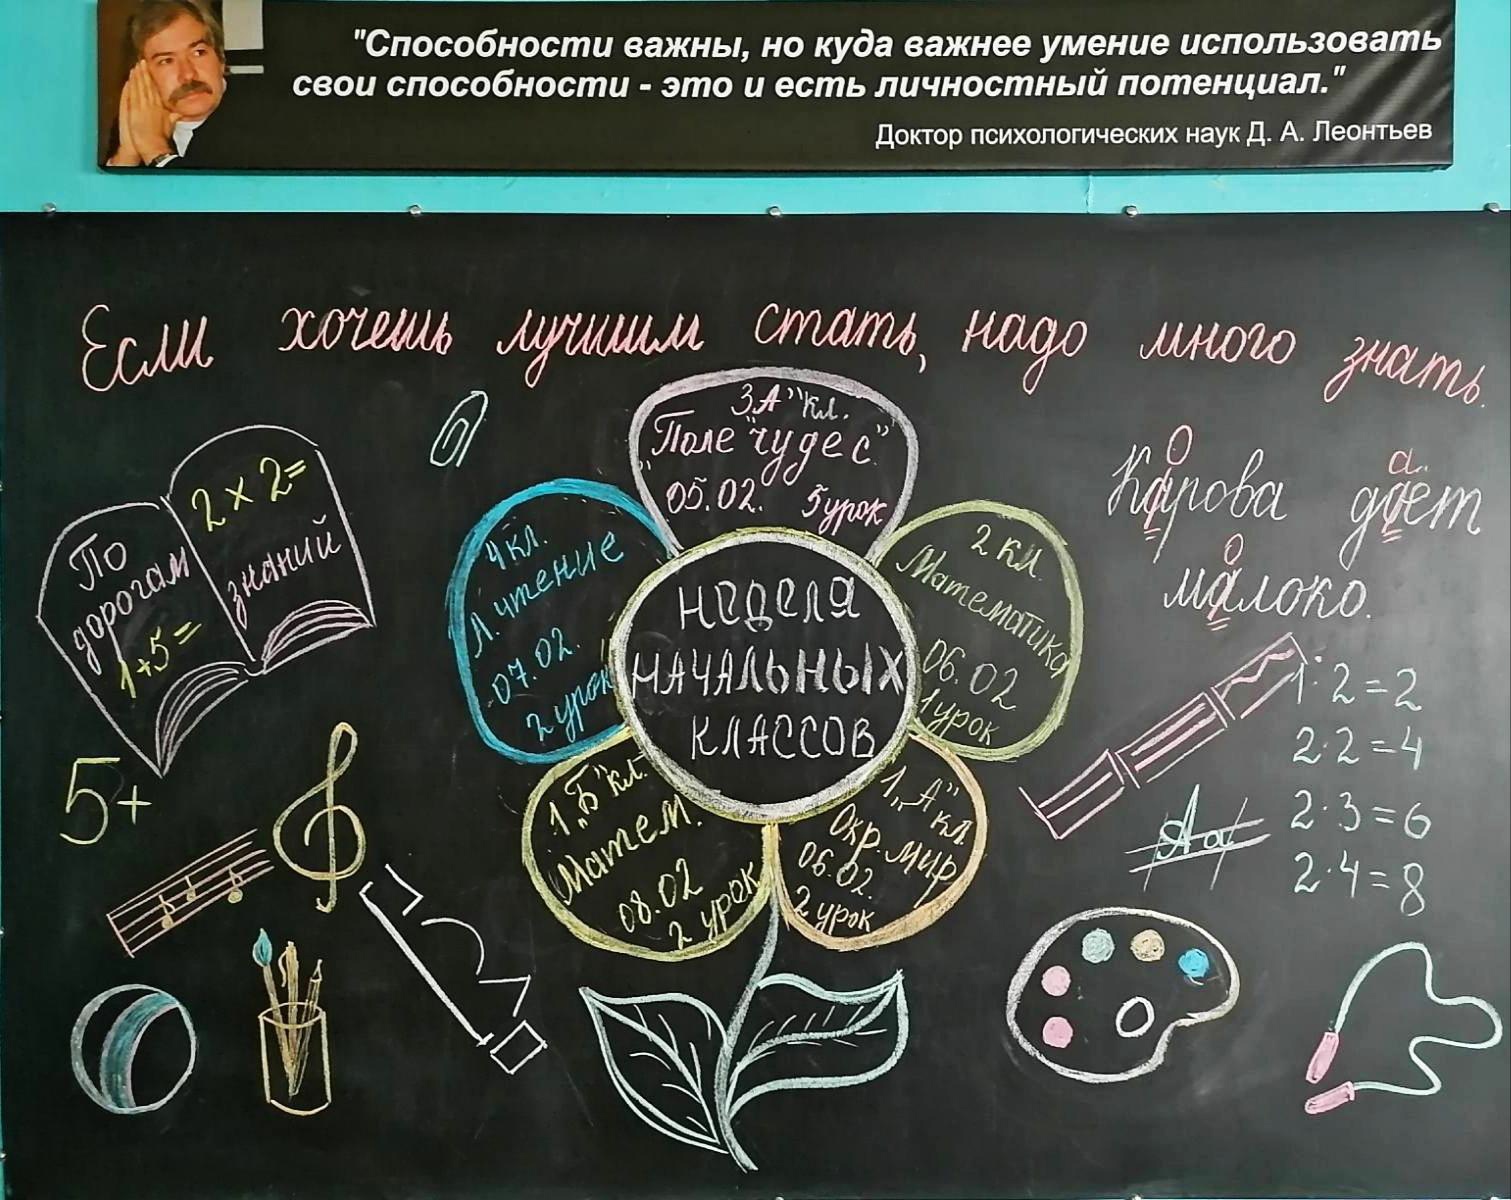 "Способности важны, но куда важнее умение использовать
свои способности - это и есть личностный потенциал."
Доктор психологических наук Д. А. Леонтьев
Если хочешь лучшим стать, надо много знать.
По
дорогам
1+5=
2 х 2=
знаний
3А" кл.
"Поле "чудес"
05.02. 5 урок
4 кл.
Л. чтение
07.02.
2 урок
НЕДЕЛЯ
НАЧАЛЬНЫХ
КЛАССОВ
2 кл.
Математика
06.02
1 урок
1 „Б" кл.
Матем.
08.02
2 урок
1 „А" кл.
Окр. мир
06.02.
2 урок
о а
Карова дает
о
малоко.
1·2=2
2·2=4
2·3=6
2·4=8
Аа
5+